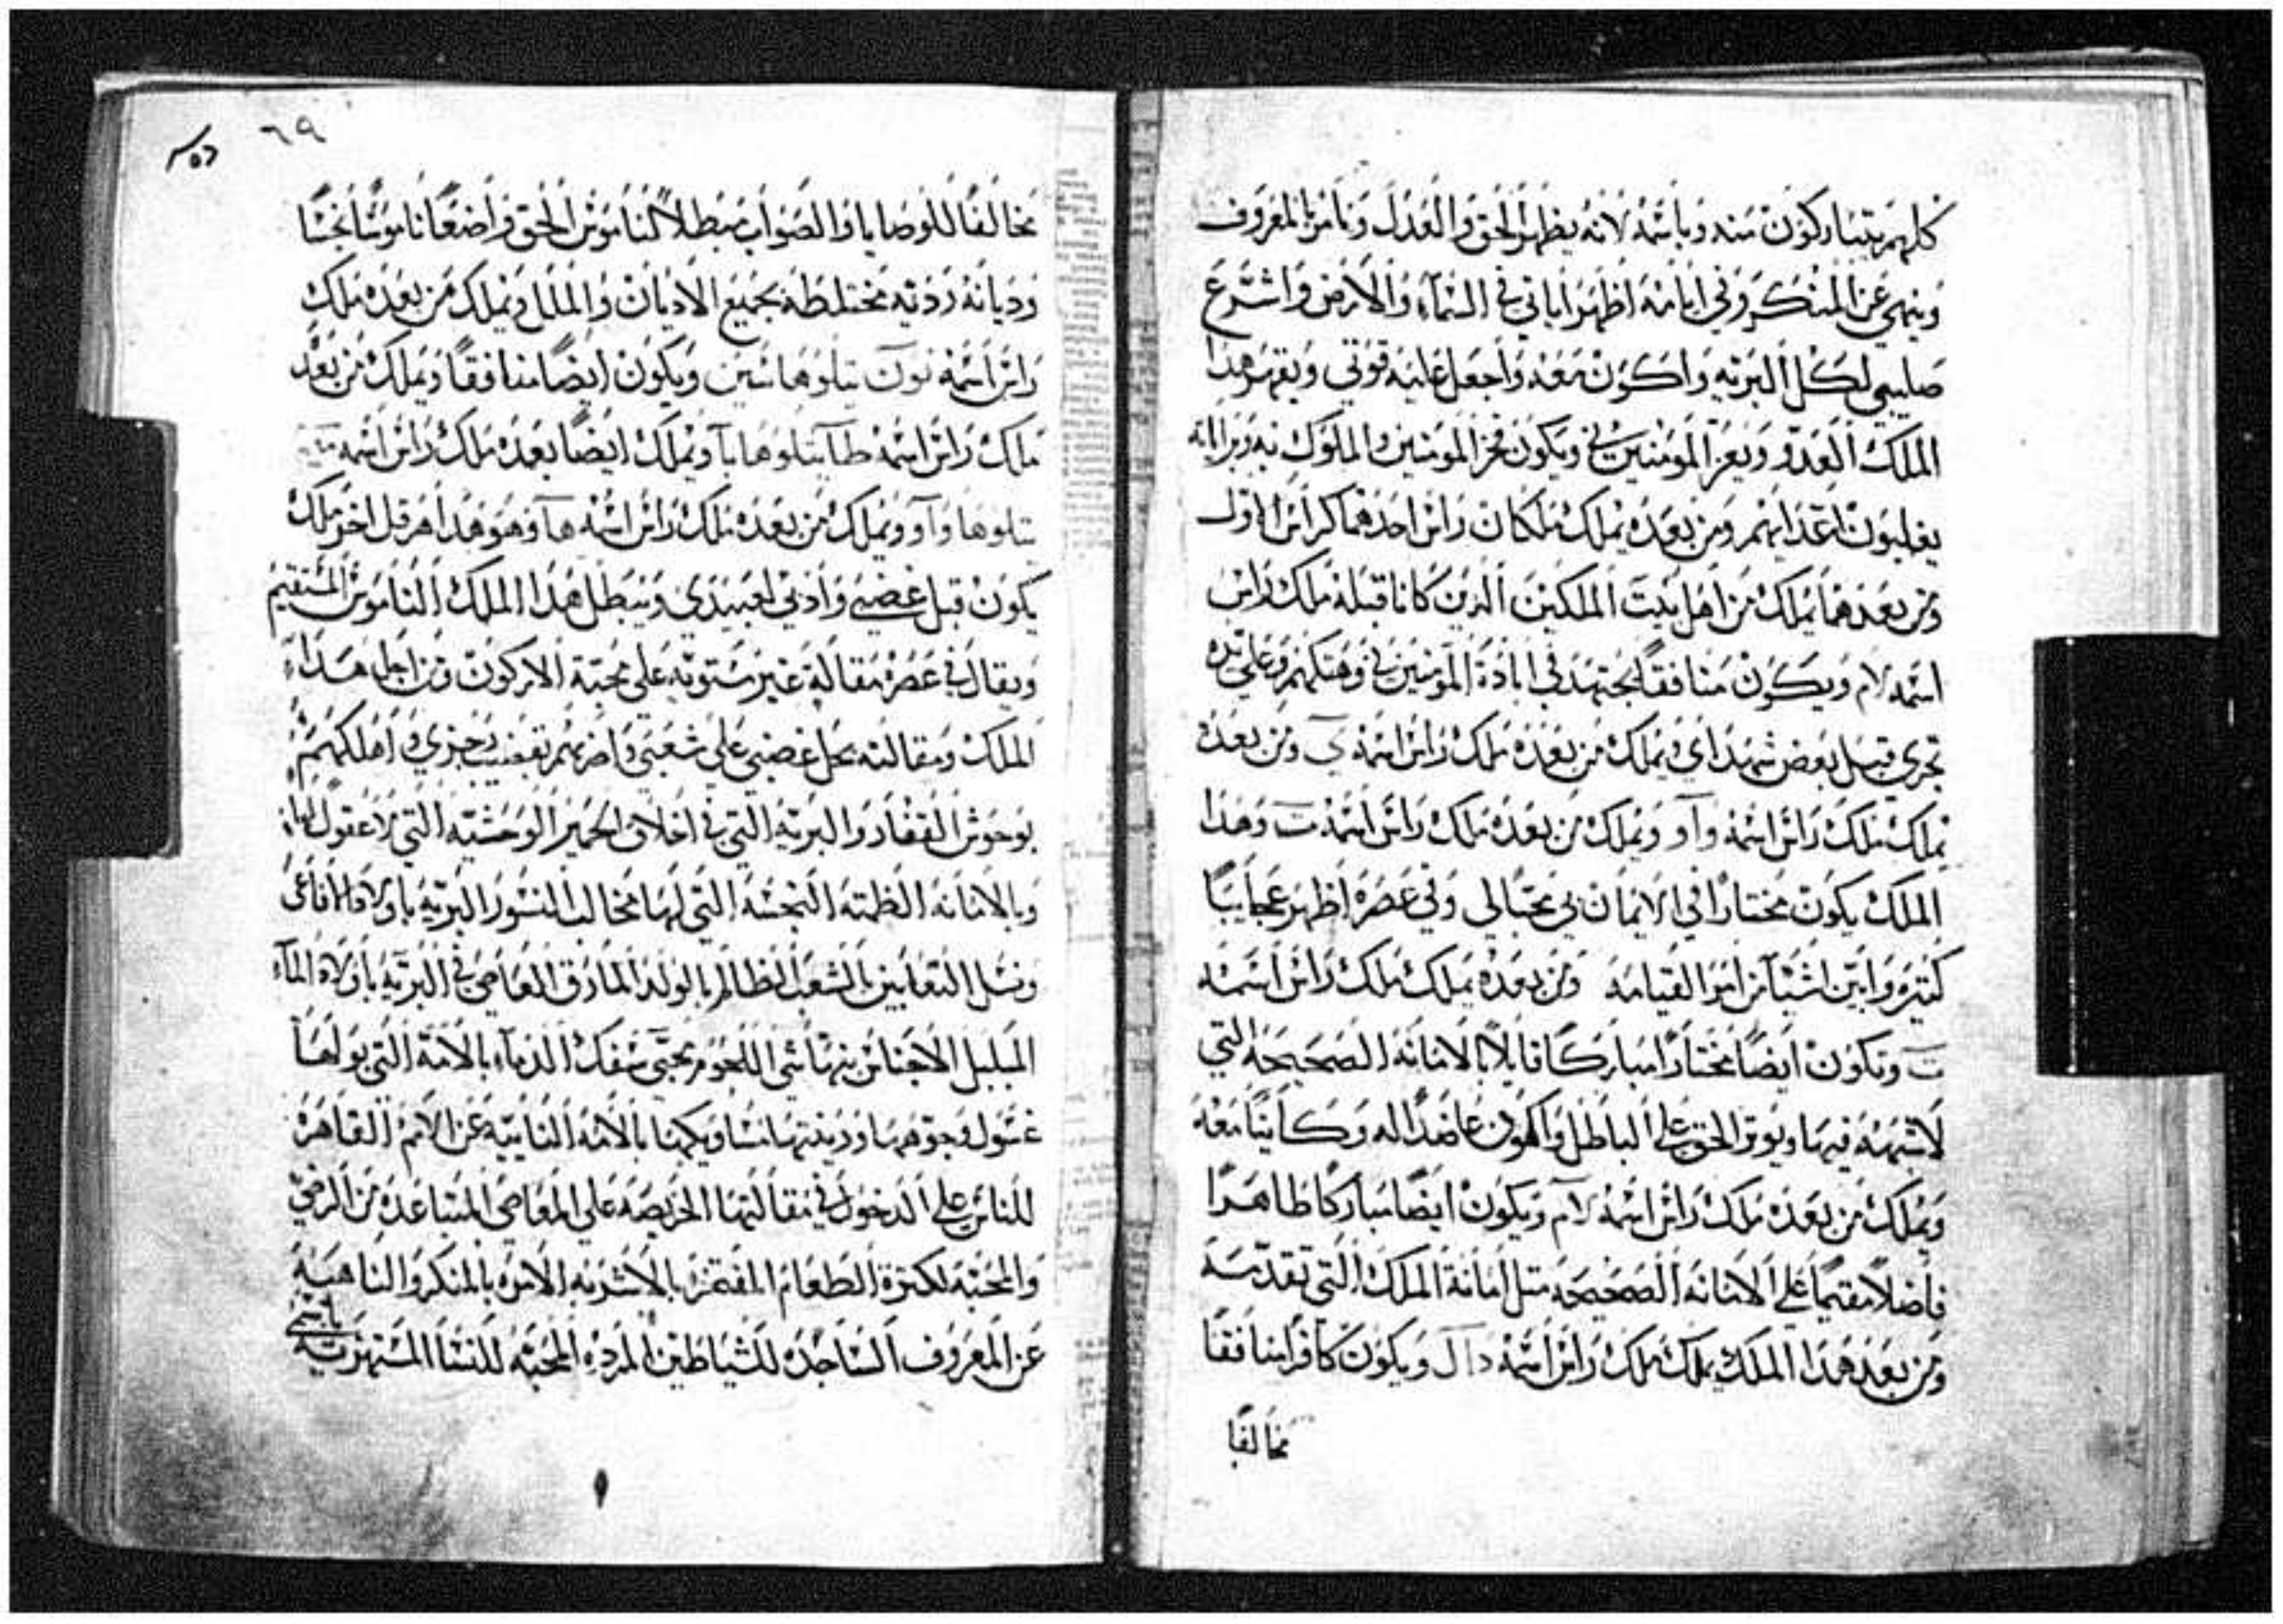 كلهم يتباركون منه وباسمه لانه يظهر الحق والعدل ويامر بالمعروف
وينهي عن المنكر وفي ايامه اظهر اياتي في السمآء والارض واشرع
صليبي لكل البريه واكون معه واجعل عليه قوتي ويقهر هدا
الملك العدو ويعز المومنين بي ويكون فخر المومنين والملوك به
يغلبون اعدايهم ومن بعده يملك ملكان راس احدهما كراس الاول
ومن بعدهما يملك من اهل بيت الملكين الدين كانا قبله ملك راس
اسمه لام ويكون منافقا يجتهد في ابادة المومنين بي وهتكهم وعلي يده
تجري قبل بعض شهداي ويملك من بعده ملك راس اسمه ي ومن بعده
يملك ملك راس اسمه وآو ويملك من بعده ملك راس اسمه ت وهدا
الملك يكون مختارا في الايمان بي محبا لي وفي عصره اظهر عجايبا
كتيره وابين اشيآ من امر القيامه ومن بعده يملك ملك راس اسمه
ت ويكون ايضا مختارا مباركا قايلا بالامانه الصحيحه التي
لاشبهه فيها ويقوي الحق علي الباطل واكون عاضدا له وكاينا معه
ويملك من بعده ملك راس اسمه لام ويكون ايضا مباركا طاهرا
فاضلا مقيما علي الامانه الصحيحه متل امانة الملك التي تقدمه
ومن بعد هدا الملك يملك ملك راس اسمه دال ويكون كافرا منافقا
مخالفا
٦٩
مخالفا للوصايا والصواب مبطلا لناموس الحق واضعا ناموسا نجسا
وديانه رديه مختلطه بجميع الاديان والملل ويملك من بعده ملك
راس اسمه نون يتلوها سين ويكون ايضا منافقا ويملك من بعد
ملك راس اسمه طآ يتلوها يآ ويملك ايضا بعده ملك راس اسمه
يتلوها وآو ويملك من بعده ملك راس اسمه هآ وهو هدا هرقل اخر ملك
يكون قبل غضبي وادبي لعبيدي ويبطل هدا الملك الناموس المستقيم
ويقال في عصره مقالة غير مستويه علي محبة الاركون ومن اجل هداء
الملك ومقالته يحل غضبي علي شعبي واضربهم بقضيب رجزي واهلكهم
بوحوش القفار والبريه التي في اخلاق الحمير الوحشيه التي لا عقول لها
وبالامانه الظلمه النجسه التي لها مخالب النسور البريه باولاد الافاعي
ونسل التعابين بالشعب الظالم بالولد المارق العاصي في البريه باولاد المآء
المبلبل الاجناس نهاشي اللحوم محبي سفك الدمآء بالامة التي بولها
غسول وجوهها وزينتها نسا ويكهنا بالامه النايبه عن الامم القاهره
للناس علي الدخول في مقالتها الحريصه علي المعاصي المتباعده من الرضي
والمحبة لكترة الطعام المفتخره بالاشربه الامره بالمنكر والناهيه
عن المعروف الساجده للشياطين المرده المحبه للنسا المستهزيه